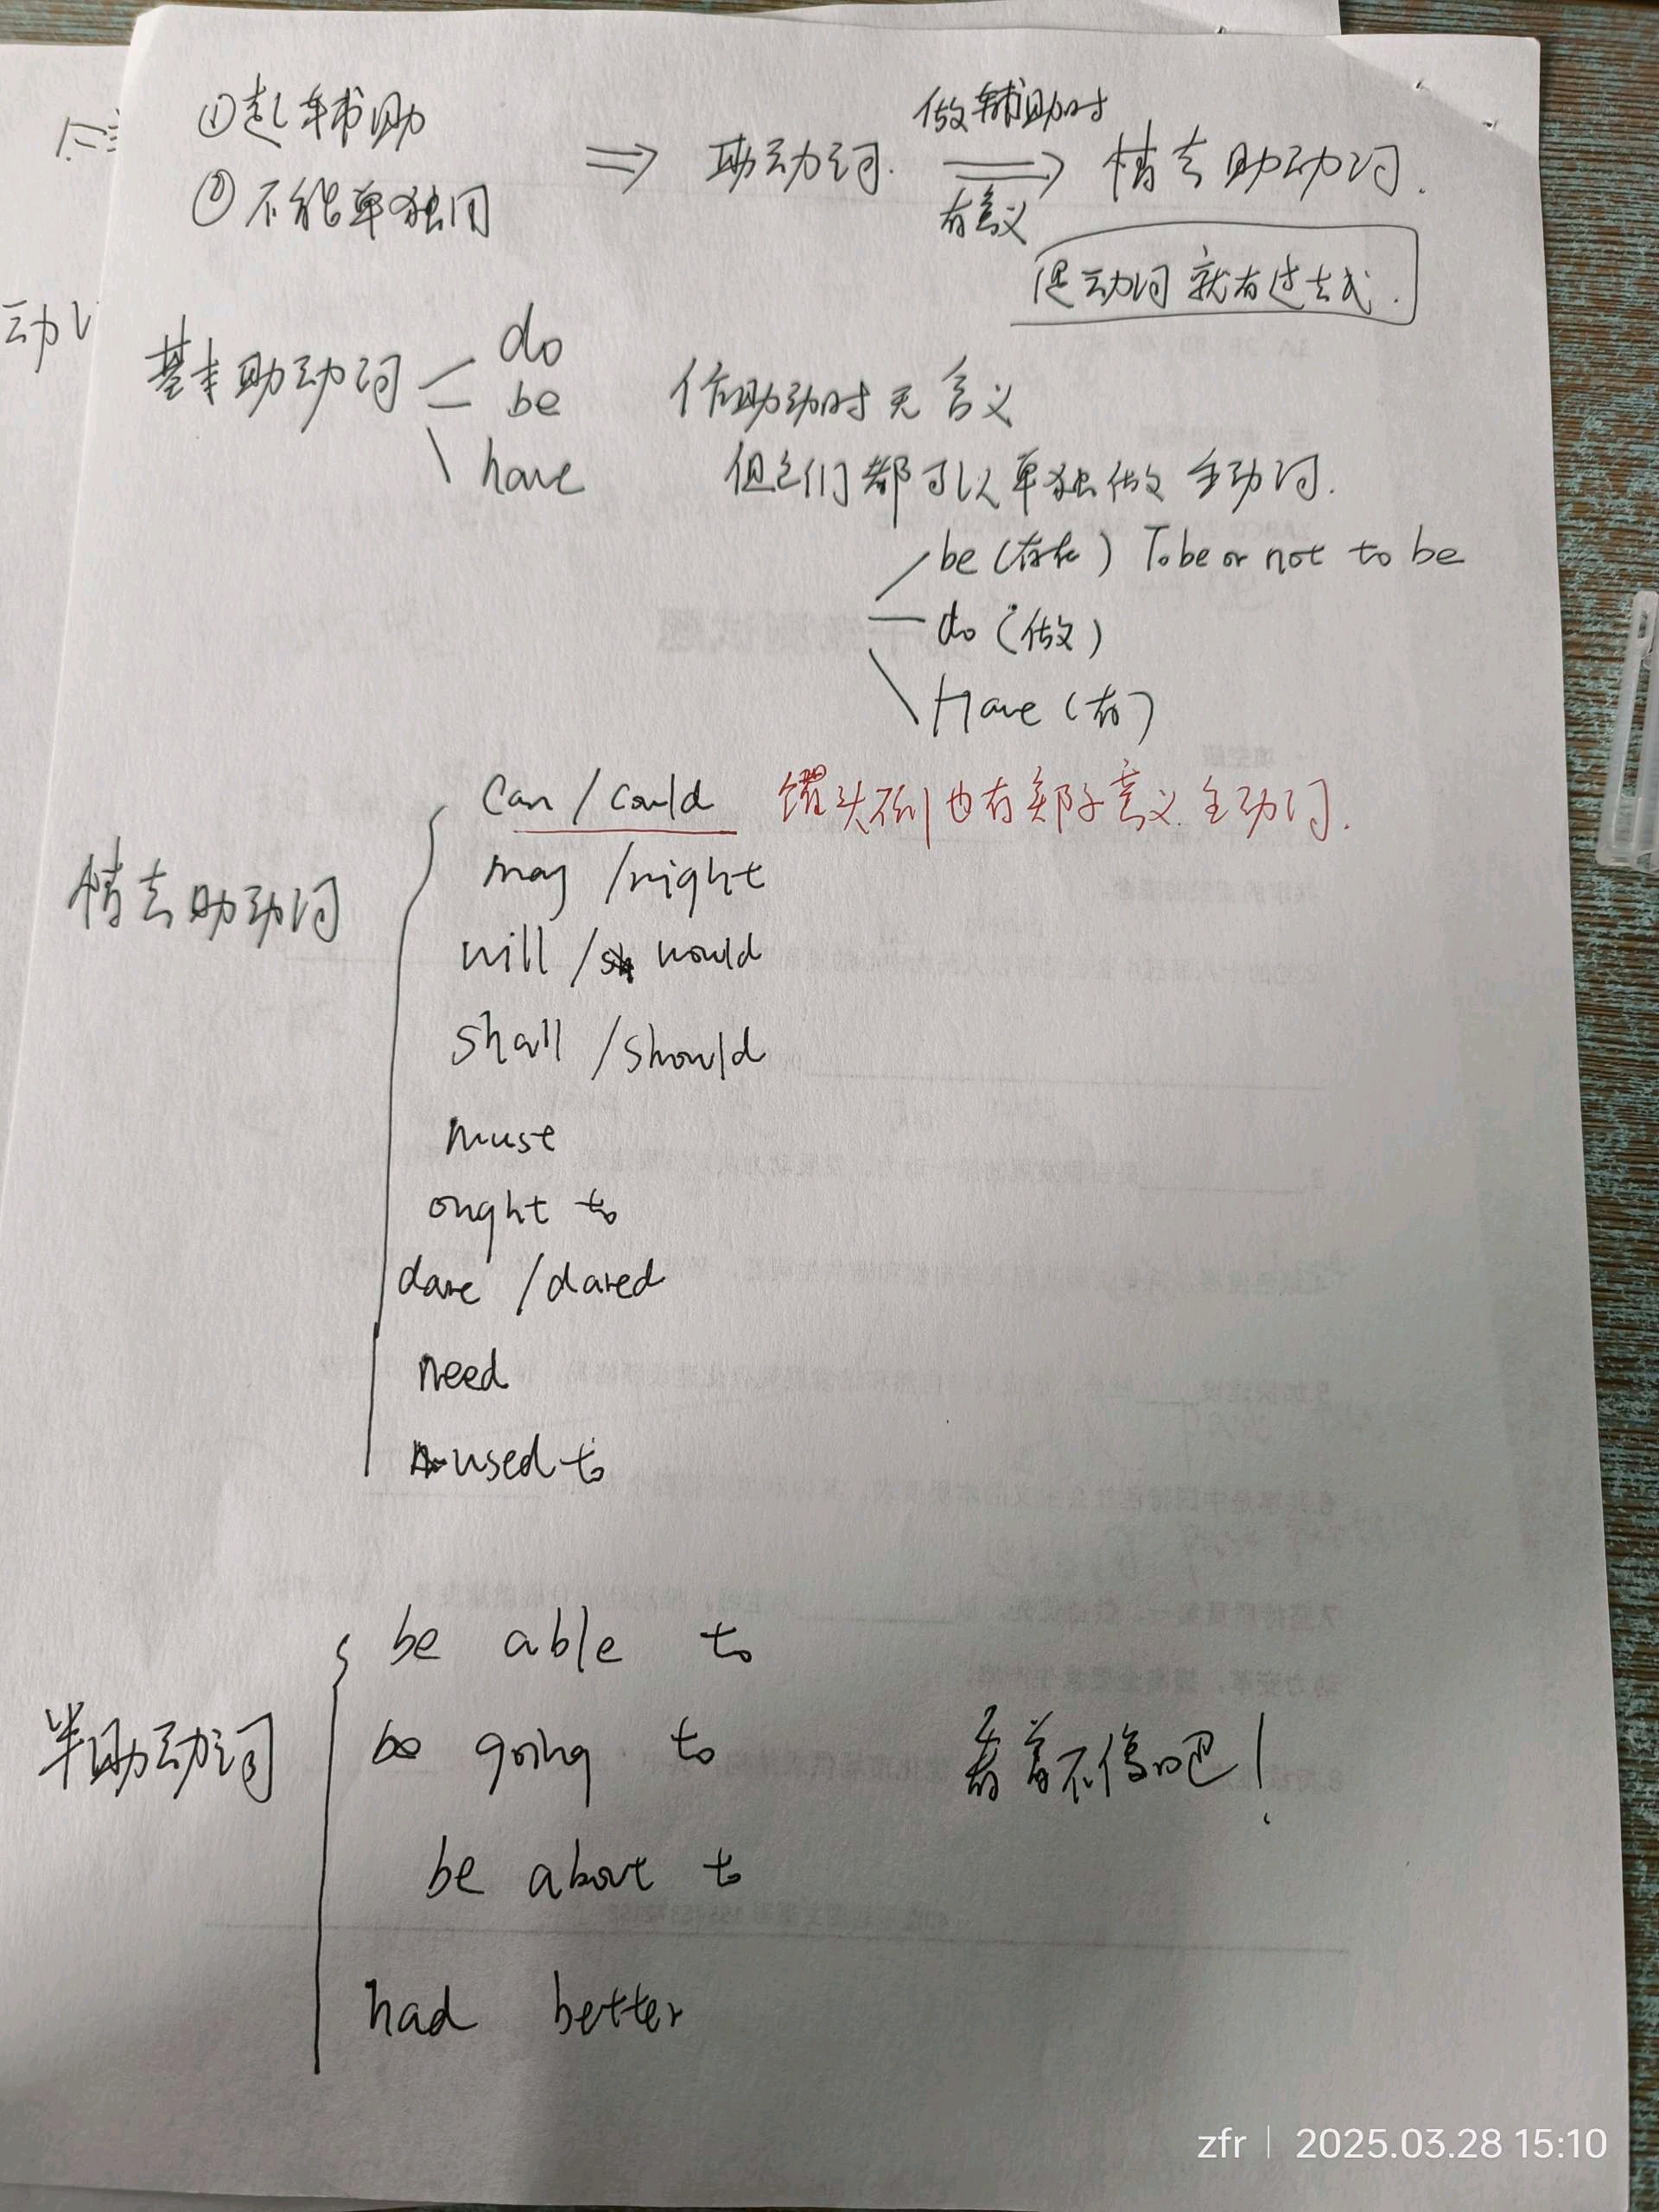 ①起辅助
②不能单独用
⇒ 助动词.
做辅助时
有意义
⇒ 情态助动词.
是动词 就有过去式.
基本助动词
do
be
have
作助动时无意义
但它们都可以单独做 主动词.
be (存在) To be or not to be
do (做)
Have (有)
情态助动词
can / could 罐头 例也有 意义 主动词.
may / might
will / would
shall / should
must
ought to
dare / dared
need
used to
半助动词
be able to
be going to
be about to
had better
看着不像吧!
zfr | 2025.03.28 15:10